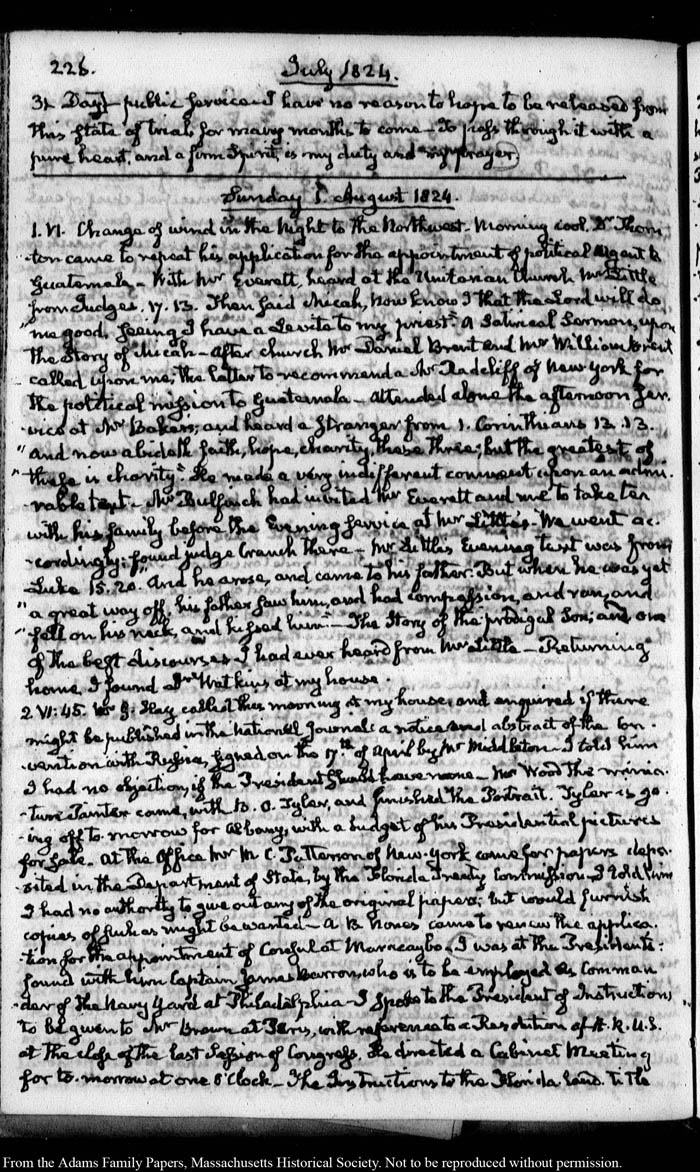 226.
July 1824.
31. Day public service I have no reason to hope to be released from
this state of trial for many months to come — To pass through it with a
pure heart, and a firm Spirit, is my duty and my prayer.
Sunday 1. August 1824.
1. VI. Change of wind in the Night to the Northwest. Morning cool. Dr Thorn-
-ton came to repeat his application for the appointment of political Agent to
Guatemala — With Mr Everett, heard at the Unitarian Church Mr Little
from Judges. 17. 13. Then said Micah, now know I that the Lord will do
"me good, seeing I have a Levite to my priest." A Satirical Sermon, upon
the Story of Micah — After church Mr Daniel Brent and Mr William Brent
called upon me; the latter to recommend a Mr Radcliff of New York for
the political mission to Guatemala — Attended alone the afternoon ser-
-vice at Mr Baker's; and heard a Stranger from 1. Corinthians 13. 13.
"and now abideth faith, hope, charity, these three; but the greatest of
"these is charity" He made a very indifferent comment upon an admi-
-rable text — Mr Bulfinch had invited Mr Everett and me to take tea
with his family before the Evening service at Mr Little's. We went ac-
-cordingly: found Judge Cranch there — Mr Little's Evening text was from
Luke 15. 20. "And he arose, and came to his father. But when he was yet
"a great way off, his father saw him, and had compassion, and ran, and
"fell on his neck, and kissed him" — The Story of the prodigal Son; and one
of the best discourses I had ever heard from Mr Little — Returning
home I found Dr Watkins at my house.
2. VI: 45. Mr G. Hay called this morning at my house, and enquired if there
might be published in the National Journal a notice and abstract of the Con-
-vention with Russia, signed on the 17th of April by Mr Middleton — I told him
I had no objection, if the President should have none — Mr Wood the minia-
-ture Painter came, with B. O. Tyler, and finished the Portrait. Tyler is go-
-ing off to-morrow for Albany, with a budget of his Presidential pictures
for sale. At the Office Mr M. C. Patterson of New-York came for papers depo-
-sited in the Department of State, by the Florida Treaty Commission I told him
I had no authority to give out any of the original papers; but would furnish
copies of such as might be wanted — A. B. Nones came to renew the applica-
-tion for the appointment of Consul at Maracaybo — I was at the President's:
found with him Captain James Barron, who is to be employed as Comman-
-der of the Navy Yard at Philadelphia — I spoke to the President of Instructions
to be given to Mr Brown at Paris, with reference to a Resolution of H. R. U.S.
at the close of the last Session of Congress. He directed a Cabinet Meeting
for to-morrow at one O'Clock — The Instructions to the Florida land title
From the Adams Family Papers, Massachusetts Historical Society. Not to be reproduced without permission.